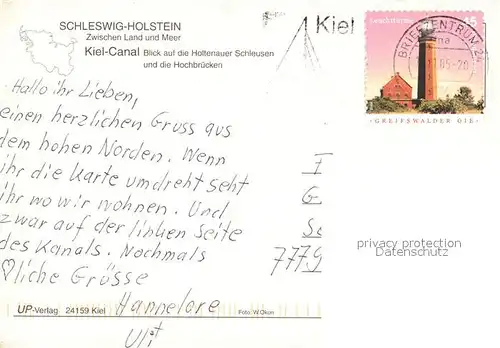 SCHLESWIG-HOLSTEIN
Zwischen Land und Meer
Kiel-Canal Blick auf die Holtenauer Schleusen
und die Hochbrücken
Kiel
Leuchttürme 45
BRIEFZENTRUM 24
05-20
GREIFSWALDER OIE
Hallo ihr Lieben,
einen herzlichen Gruss aus
dem hohen Norden. Wenn
ihr die Karte umdreht seht
ihr wo wir wohnen. Und
zwar auf der linken Seite
des Kanals. Nochmals
♡liche Grüsse
Hannelore
777
privacy protection
Datenschutz
UP-Verlag 24159 Kiel
Foto: W.Okon